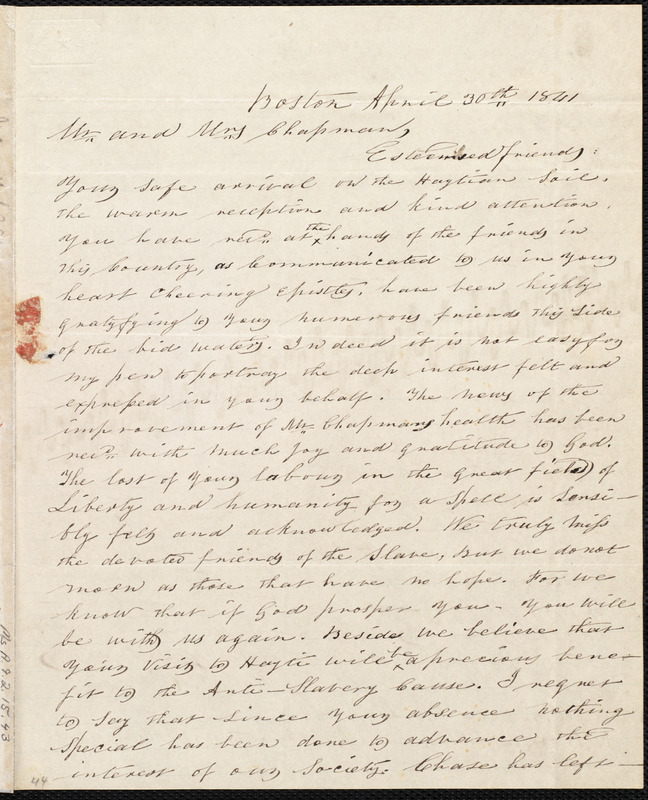 Boston April 30th 1841
Mr. and Mrs Chapman,
Esteemed friends:
Your safe arrival on the Haytian Soil,
the warm reception and kind attention,
You have recd. at the hands of the friends in
this Country, as Communicated to us in Your
heart Cheering Epistles, have been highly
gratyfying to Your numerous friends this Side
of the big waters. Indeed it is not easy for
my pen to portray the deep interest felt and
expressed in your behalf. The news of the
improvement of Mr. Chapmans health has been
recd. with much Joy and gratitude to God.
The lost of Your labour in the great field of
Liberty and humanity for a Spell is Sensi-
bly felt and acknowledged. We truly miss
the devoted friends of the Slave, But we do not
morn as those that have no hope. For we
know that if God prosper You - You will
be with us again. Beside we believe that
Your Visit to Hayti will be a precious bene=
fit to the Anti-Slavery Cause. I regret
to Say that Since Your absence nothing
Special has been done to advance the
interest of our Society. Chase has left -
44
Ms.A.9.2.15.43